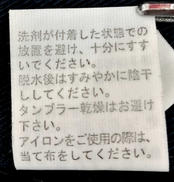 洗剤が付着した状態での
放置を避け、十分にすす
いでください。
脱水後はすみやかに陰干
ししてください。
タンブラー乾燥はお避け
下さい。
アイロンをご使用の際は、
当て布をしてください。